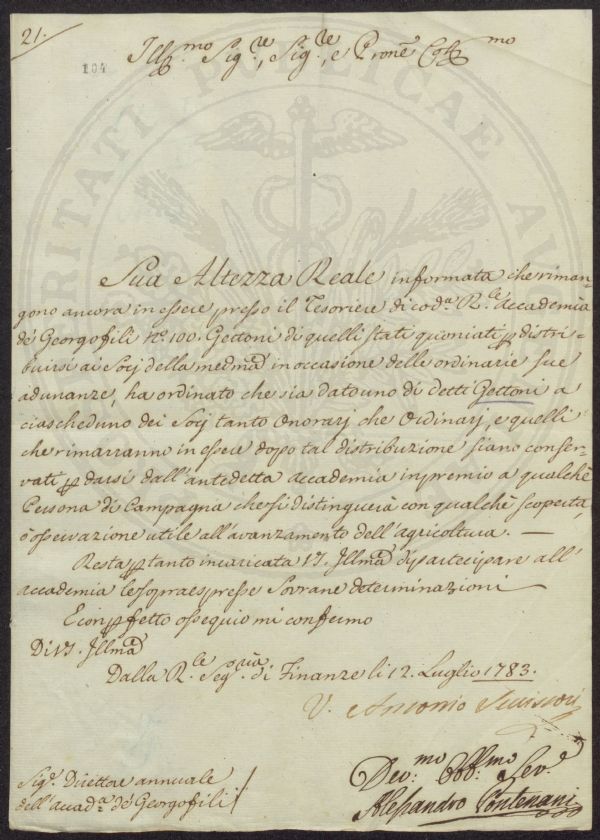 21.
104
Ill.mo Sig.re, Sig.re, e Prone Col.mo
Sua Altezza Reale informata che riman-
gono ancora in essere presso il Tesoriere di cod.a R.le Accademia
de' Georgofili n.o 100. Gettoni di quelli stati quoniati p distri-
buirsi ai Socj della medma in occasione delle ordinarie sue
adunanze, ha ordinato che sia dato uno di detti Gettoni a
ciascheduno dei Socj tanto Onorarj che Ordinarj, e quelli
che rimarranno in essere dopo tal distribuzione siano conser-
vati p darsi dall'antedetta accademia in premio a qualche
Persona di Campagna che si distinguerà con qualche scoperta,
o osservazione utile all'avanzamento dell'agricoltura. —
Resta p tanto incaricata VS. Illma di partecipare all'
accademia le sopraespresse Sovrane determinazioni
E con pfetto ossequio mi confermo
Di VS. Illma
Dalla R.le Seg.ria di Finanze li 12. Luglio 1783.
V. Antonio
Dev.mo Obb.mo Ser.e
Alessandro Pontenani
Sig.e Direttore annuale
dell'accad.a de Georgofili
VERITATI PUBLICAE